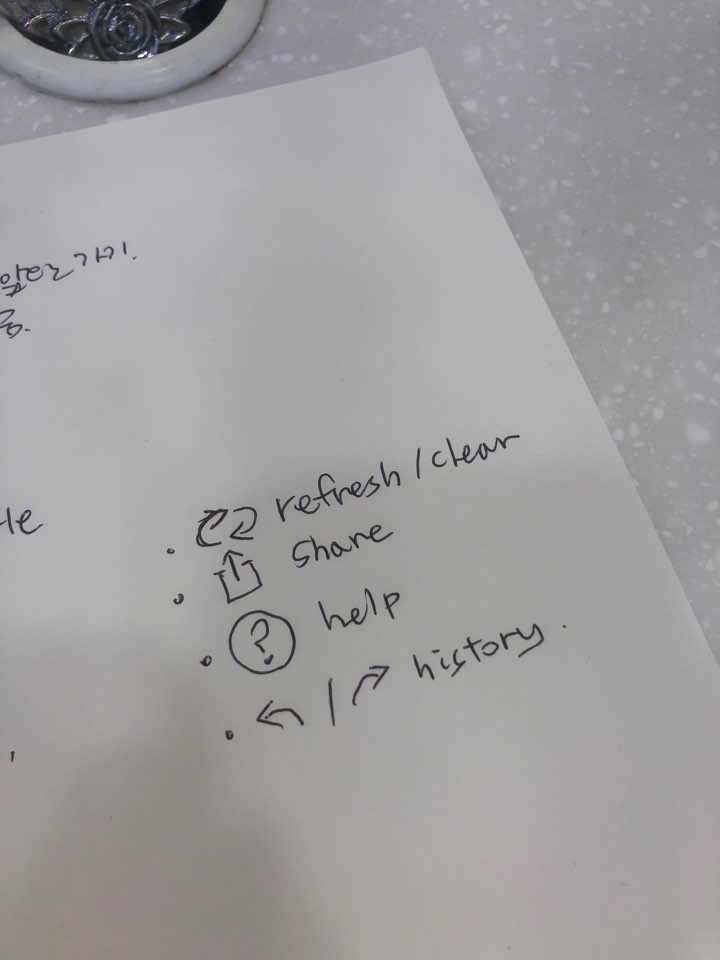 앞으로 가기.
refresh / clear
share
? help
/ history.